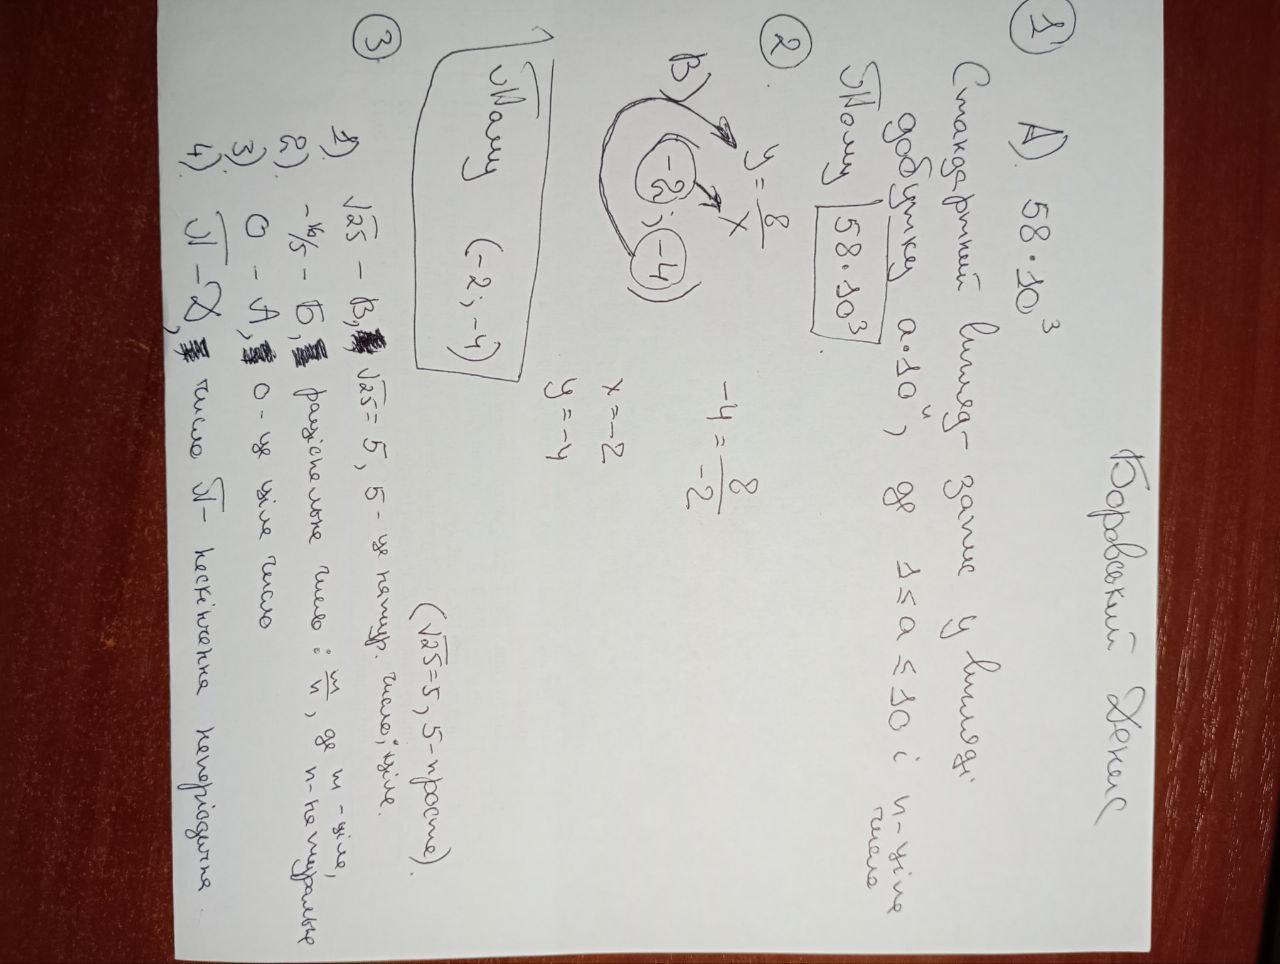 Боровський Денис
1 А). 58·10³
Стандартний вигляд- запис у вигляді
добутку a·10ⁿ, де 1≤a≤10 і n-ціле
число
Тому 58·10³.
2
y = 8/x
В)
(-2; -4)
-4 = 8/-2
x=-2
y=-4
Тому (-2; -4)
3
(√25=5, 5-просте).
1). √25 - В, √25=5, 5-це натур. число; ціле.
2). - Б, раціональне число: m/n, де m-ціле,
n-натуральне
3). 0 - А, 0-це ціле число
4). π - Д, число π- нескінченна неперіодична.